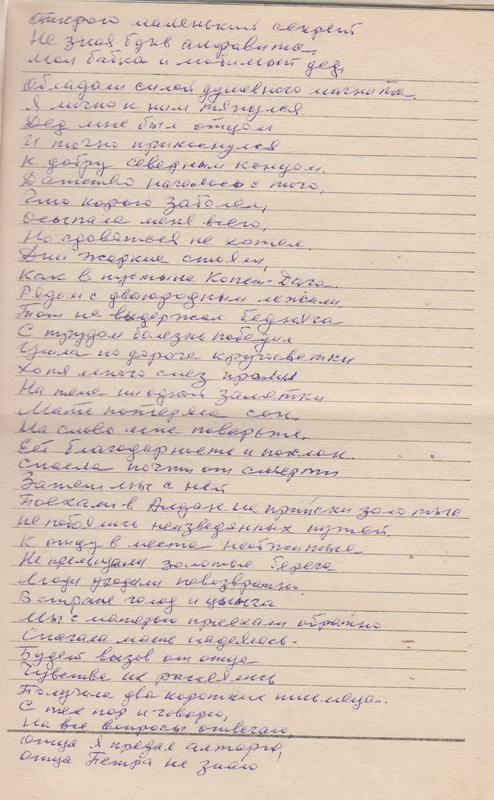 Открою маленький секрет
Не зная букв алфавита,
Моя бабка и любимый дед,
Обладали силой душевного магнита.
Я лично к ним тянулся.
Дед мне был отцом
И точно прикоснулся
К добру северным концом.
Детство началось с того,
Что корью заболел,
Осыпала меня всего,
Но сдаваться не хотел.
Дни жаркие стояли,
Как в пустыне Копет-Дага.
Рядом с двоюродным лежали.
Тот не выдержал бедняга
С трудом болезнь победил
Ушла по дороге
Хотя много слез пролил
На теле ни одной заметки
Мать потеряла сон.
На слово мне поверьте,
Ей благодарность и поклон.
Спасла почти от смерти
Затем мы с ней
Поехали в Алдан на прииски золотые
не побоялись неизведанных путей
К отцу в места необжитые
Не прельщали золотые берега
Люди уходили невозвратно.
В стране голод и цынга
Мы с матерью приехали обратно.
Сначала мать надеялась-
Будет вызов от отца
Чувства их рассеялись
Получила два коротких письмеца..
С тех пор и говорю,
На все вопросы отвечаю,
Отца я предал алтарю,
Отца Петра не знаю